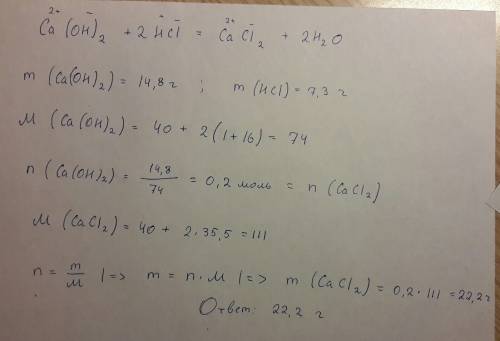 Ca²⁺(OH⁻)₂ + 2H⁺Cl⁻ = Ca²⁺Cl⁻₂ + 2H₂O
m (Ca(OH)₂) = 14,8 г ; m (HCl) = 7,3 г
M (Ca(OH)₂) = 40 + 2(1+16) = 74
n (Ca(OH)₂) = 14,8/74 = 0,2 моль = n (CaCl₂)
M (CaCl₂) = 40 + 2·35,5 = 111
n = m/M |=> m = n·M |=> m (CaCl₂) = 0,2·111 = 22,2 г
Ответ: 22,2 г